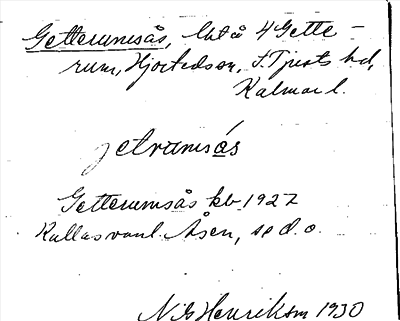 Getterumsås, lht å 4 Gette-
rum, Hjorteds sn, S. Tjusts hd,
Kalmar l.
jetramsás
Getterumsås kb 1927
Kallas vanl. Åsen,
Nils Henriksson 1930